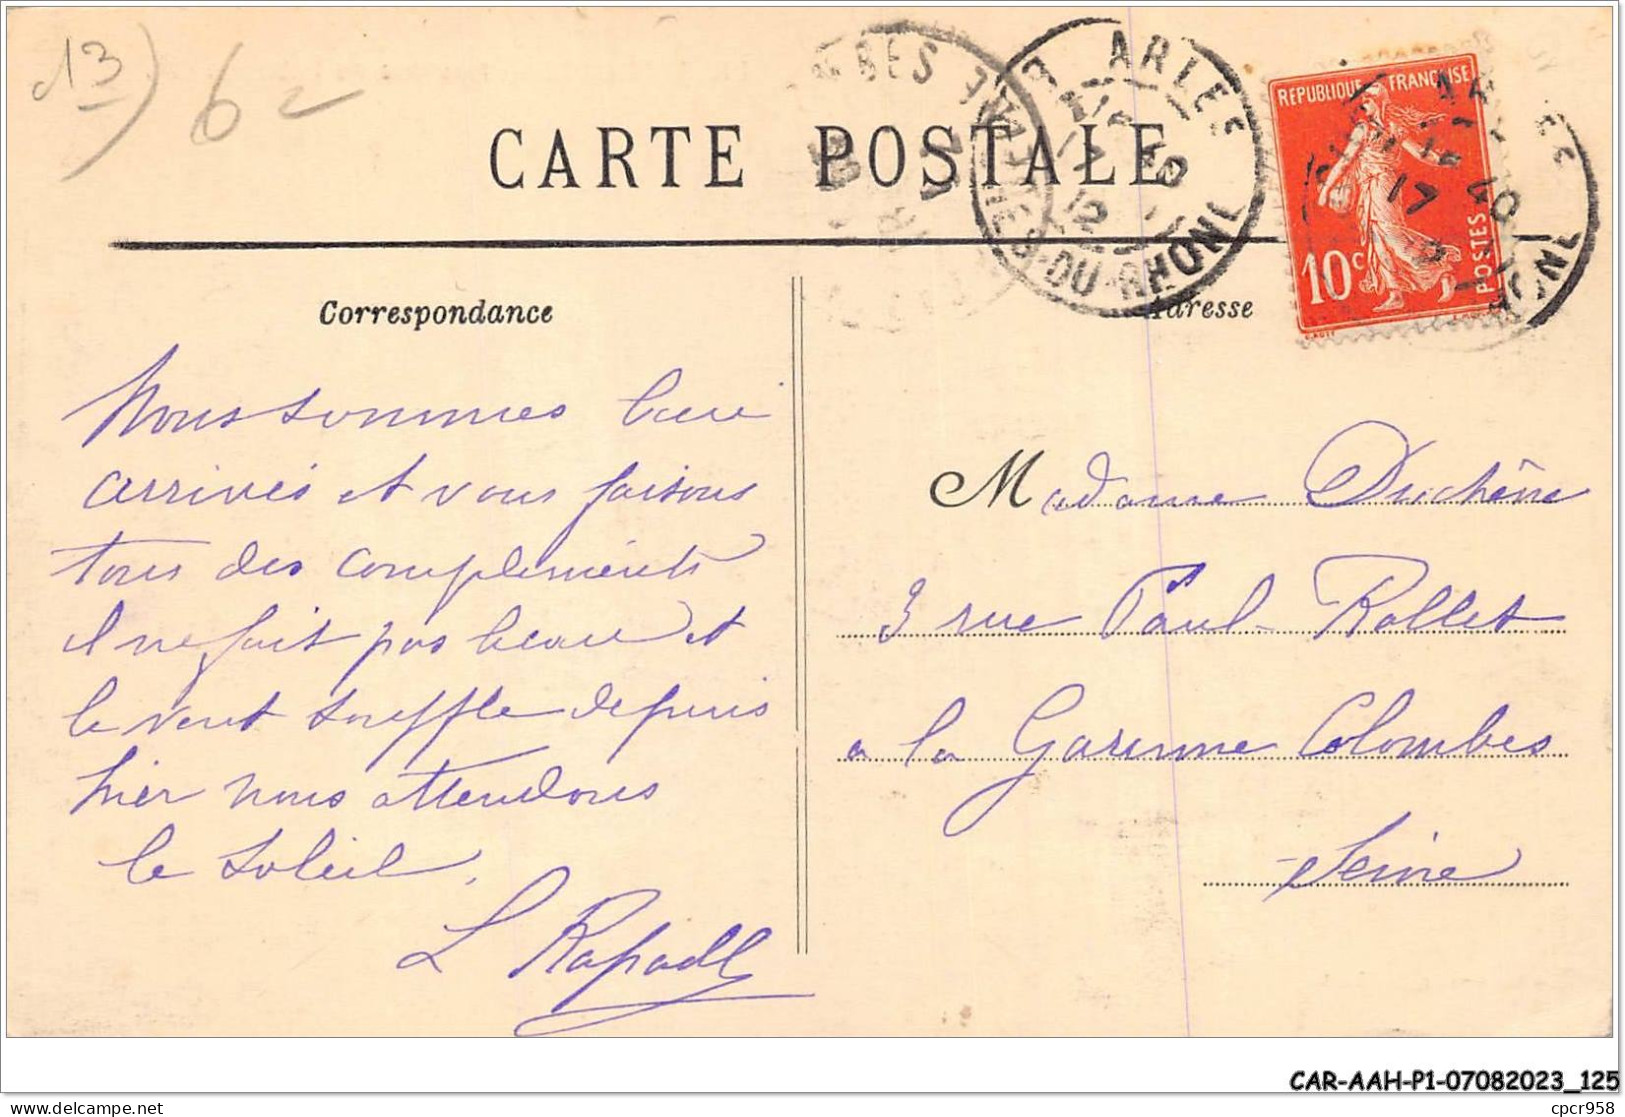 13) 6
CARTE POSTALE
ARLES
BOUCHES-DU-RHONE
REPUBLIQUE FRANÇAISE
10c POSTES
Correspondance
Nous sommes bien
arrivés et vous faisons
tous des compliments
il ne fait pas beau et
le vent souffle depuis
hier nous attendons
le soleil.
L
Adresse
Madame Duchêne
3 rue Paul-Rollet
a la Garenne Colombes
Seine
CAR-AAH-P1-07082023_125
cpcr958